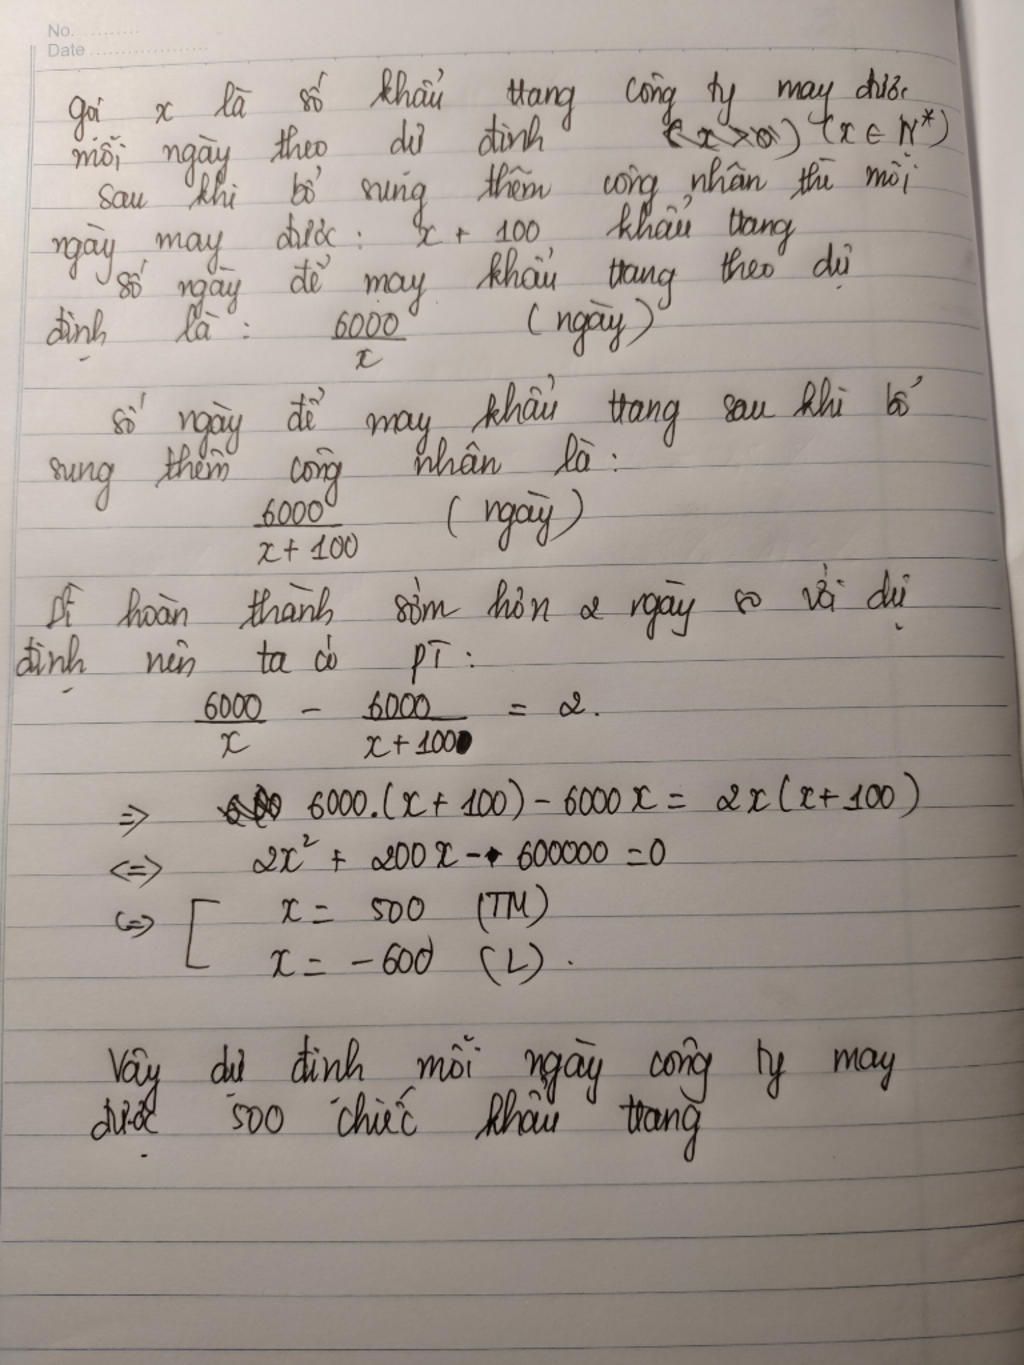 No...........
Date....................
gọi x là số khẩu trang công ty may được
mỗi ngày theo dự định (x > 0) (x ∈ N*)
sau khi bổ sung thêm công nhân thì mỗi
ngày may được: x + 100 khẩu trang
số ngày để may khẩu trang theo dự
định là: 6000/x (ngày)
số ngày để may khẩu trang sau khi bổ
sung thêm công nhân là:
6000/(x+100) (ngày)
Vì hoàn thành sớm hơn 2 ngày so với dự
định nên ta có PT:
6000/x - 6000/(x+100) = 2.
=> 6000.(x+100) - 6000x = 2x(x+100)
<=> 2x² + 200x - 600000 = 0
<=> [ x = 500 (TM)
x = -600 (L).
Vậy dự định mỗi ngày công ty may
được 500 chiếc khẩu trang